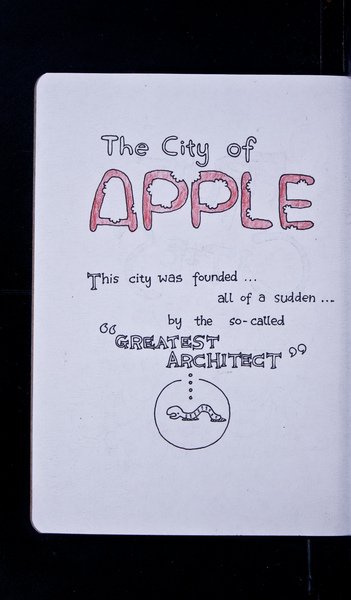 The City of
APPLE
This city was founded ...
all of a sudden ...
by the so-called
“GREATEST
ARCHITECT”